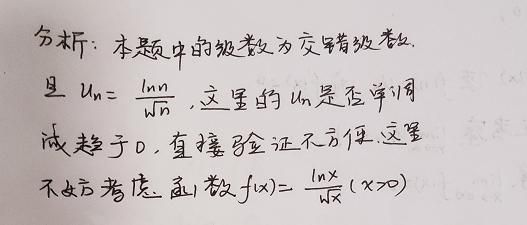 分析：本题中的级数为交错级数.
且 Un = lnn/√n，这里的 Un 是否单调
减趋于0，直接验证不方便.这里
不妨考虑函数f(x)= lnx/√x (x>0)